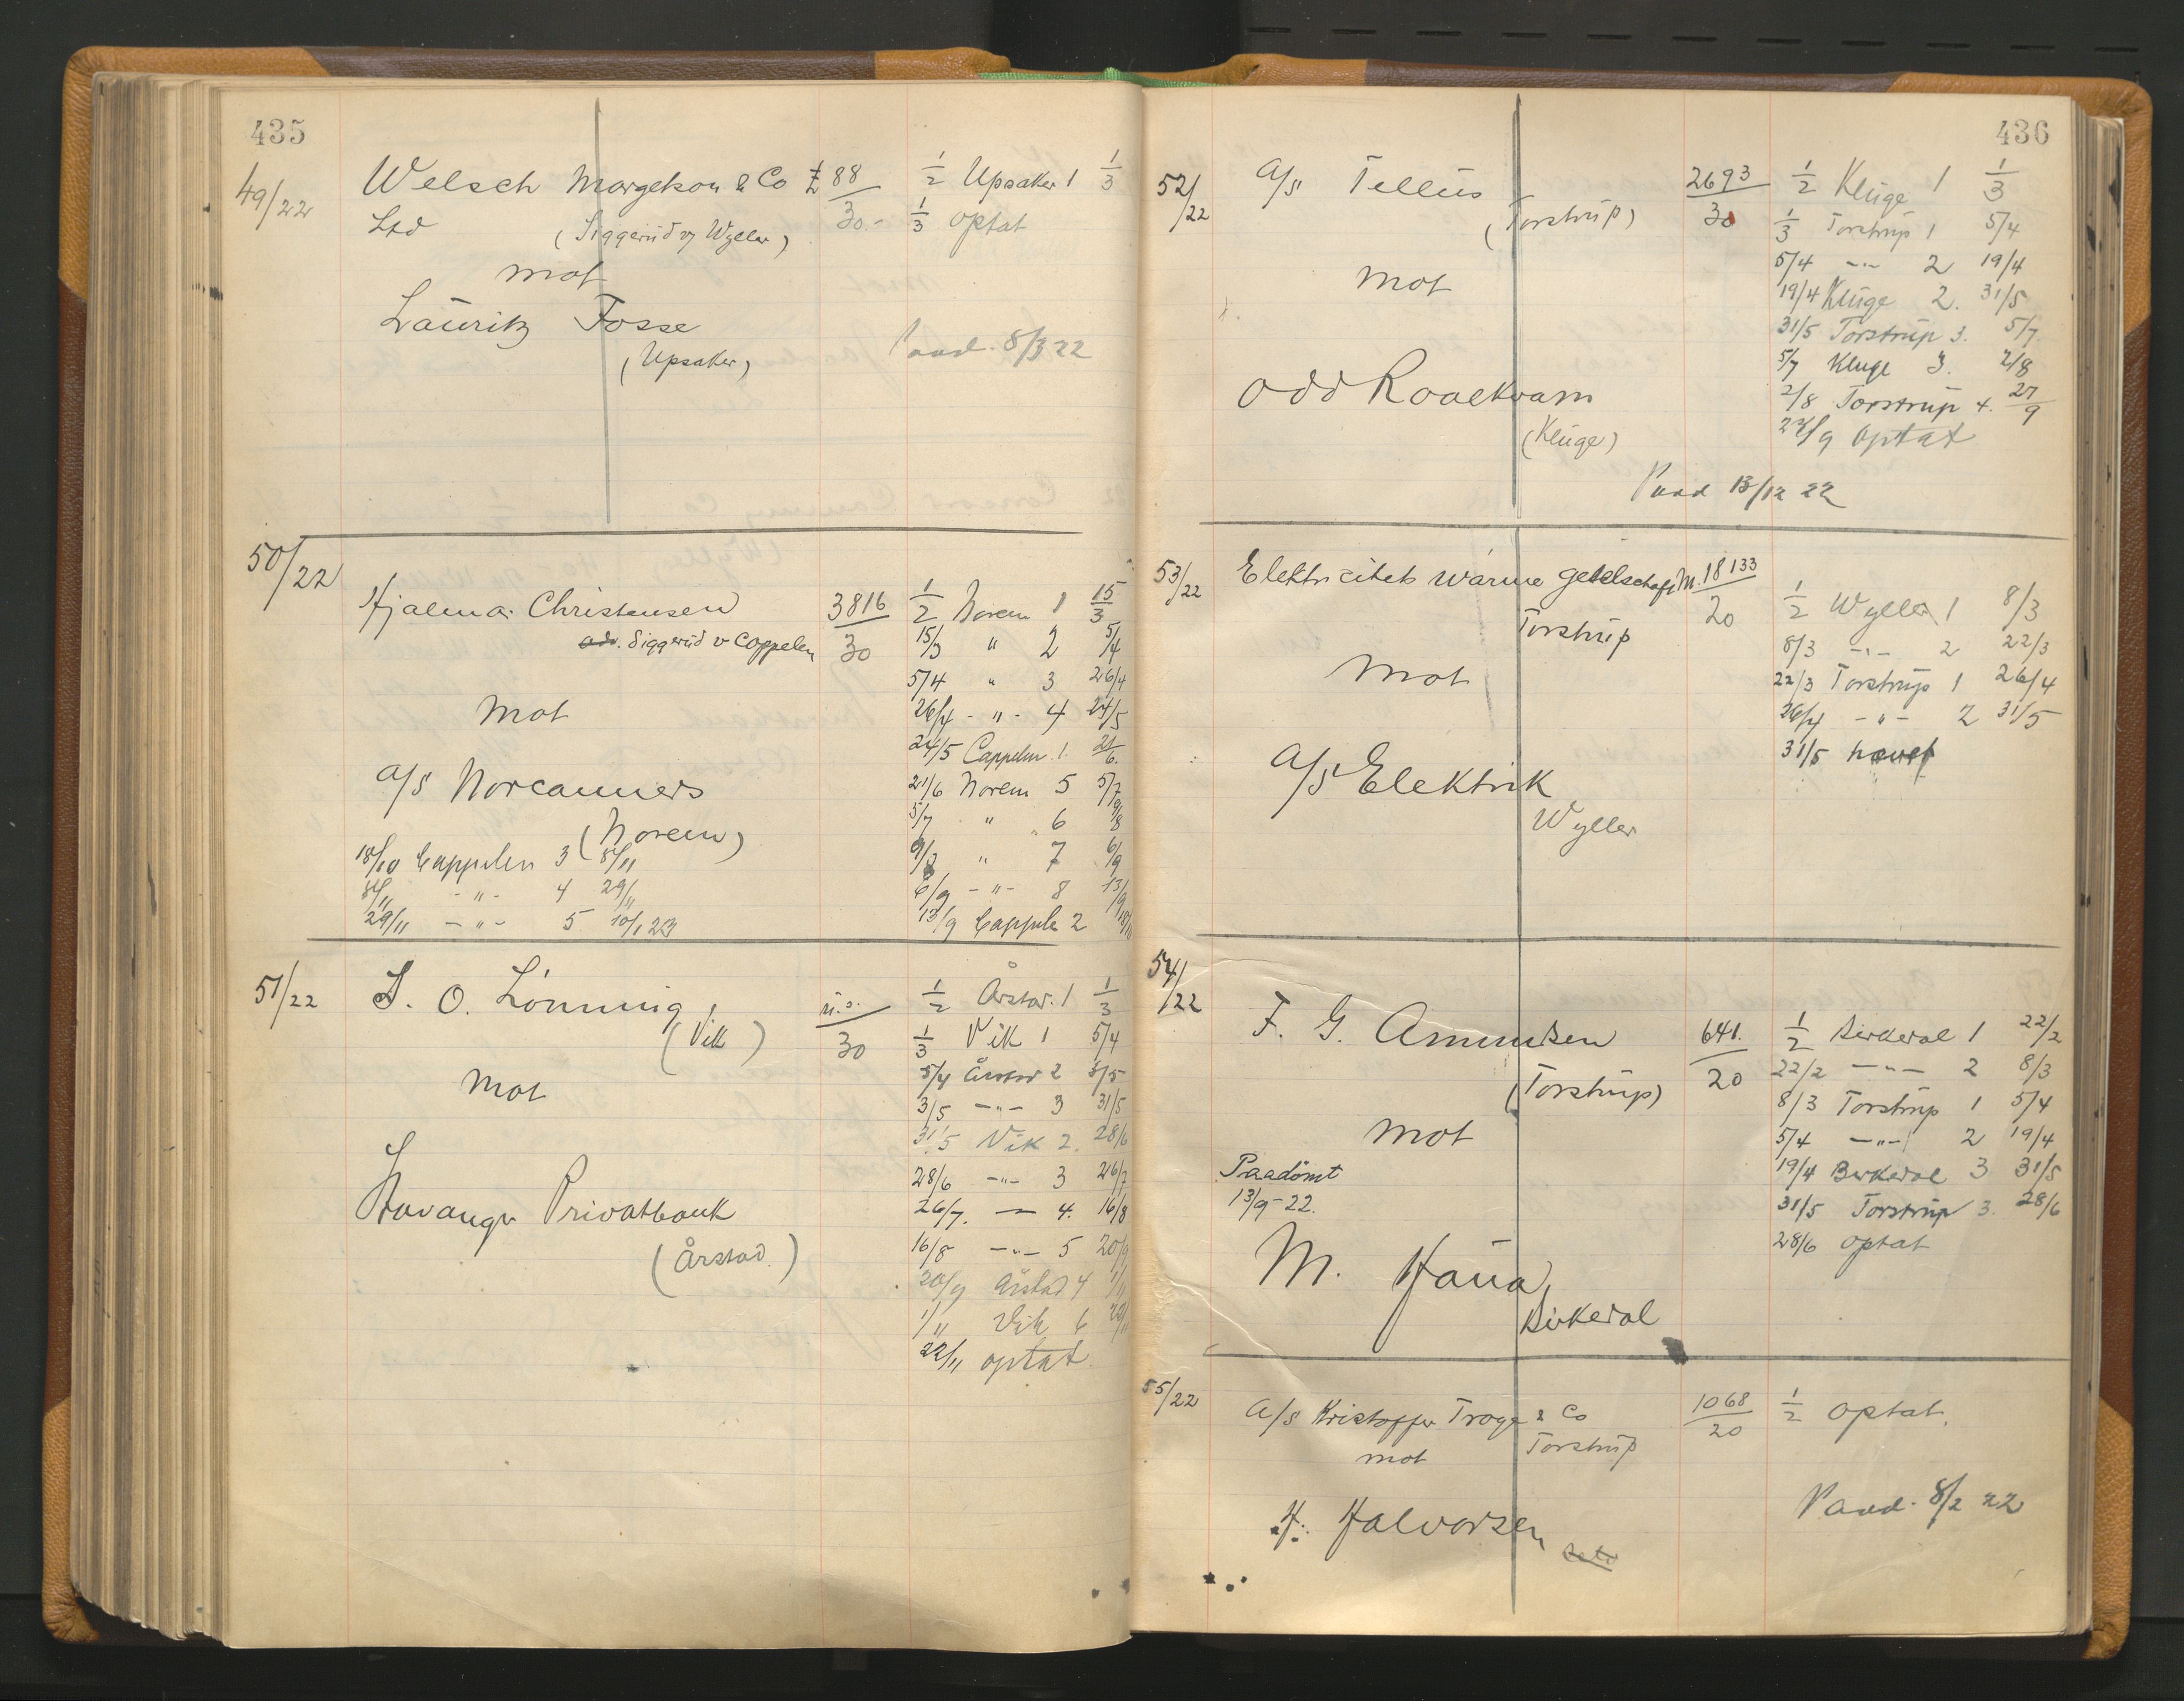 435
49/22 Welsch Margetson & Co £ 88 1/2 Upsaker 1 1/3
Ltd (Siggerud v/ Wyller) 30.- 1/3 optat
mot
Lauritz Fosse
(Upsaker) Paad. 8/3 22
50/22
Hjalmar Christensen 3816 1/2 Norem 1 15/3
adv. Siggerud v Cappelen 30 15/3 " 2 5/4
5/4 " 3 26/4
mot 26/4 - " - 4 24/5
24/5 Cappelen 1. 21/6
a/s Norcanners 21/6 Norem 5 5/7
(Norem) 5/7 " 6 9/8
18/10 Cappelen 3 8/11 9/8 " 7 6/9
8/11 - " - 4 29/11 6/9 - " - 8 13/9
29/11 - " - 5 10/1 23 13/9 Cappelen 2 18/10
51/22 S. O. Lönning, ü.s. 1/2 Årstad. 1 1/3
(Vik) 30 1/3 Vik 1 5/4
mot 5/4 Årstad 2 3/5
3/5 - " - 3 31/5
31/5 Vik 2. 28/6
28/6 - " - 3 26/7
Stavanger Privatbank 26/7. — 4. 16/8
(Årstad.) 16/8 - " - 5 20/9
20/9 Årstad 4 1/11
1/11 Vik 6 22/11
22/11 optat
436
52/22 a/s Tellus 2693 1/2 Kluge 1 1/3
(Torstrup) 30 1/3 Torstrup 1 5/4
5/4 - " - 2 19/4
mot 19/4 Kluge 2. 31/5
31/5 Torstrup 3. 5/7.
5/7 Kluge 3. 2/8
Odd Raaekvam 2/8 Torstrup 4. 27/9
(Kluge) 27/9 optat
Paad 13/12 22
53/22 Elektricitets wärme gesellschaft M. 18133 1/2 Wyller 1 8/3
Torstrup 20 8/3 - " - 2 22/3
mot 22/3 Torstrup 1 26/4
26/4 - " - 2 31/5
a/s Elektrik 31/5 hævet
Wyller
54/22
F. G. Amundsen 641. 1/2 Birkevol 1 22/2
(Torstrup) 20 22/2 - " - 2 8/3
8/3 Torstrup 1 5/4
mot 5/4 - " - 2 19/4
Paadömt 19/4 Birkevol 3 31/5
13/9-22. 31/5 Torstrup 3. 28/6
28/6 optat
M. Haua,
Birkevol
55/22 a/s Kristoffer Trage & Co 1068 1/2 optat.
mot Torstrup 20
Paad. 8/2 22
H. Halvorsen